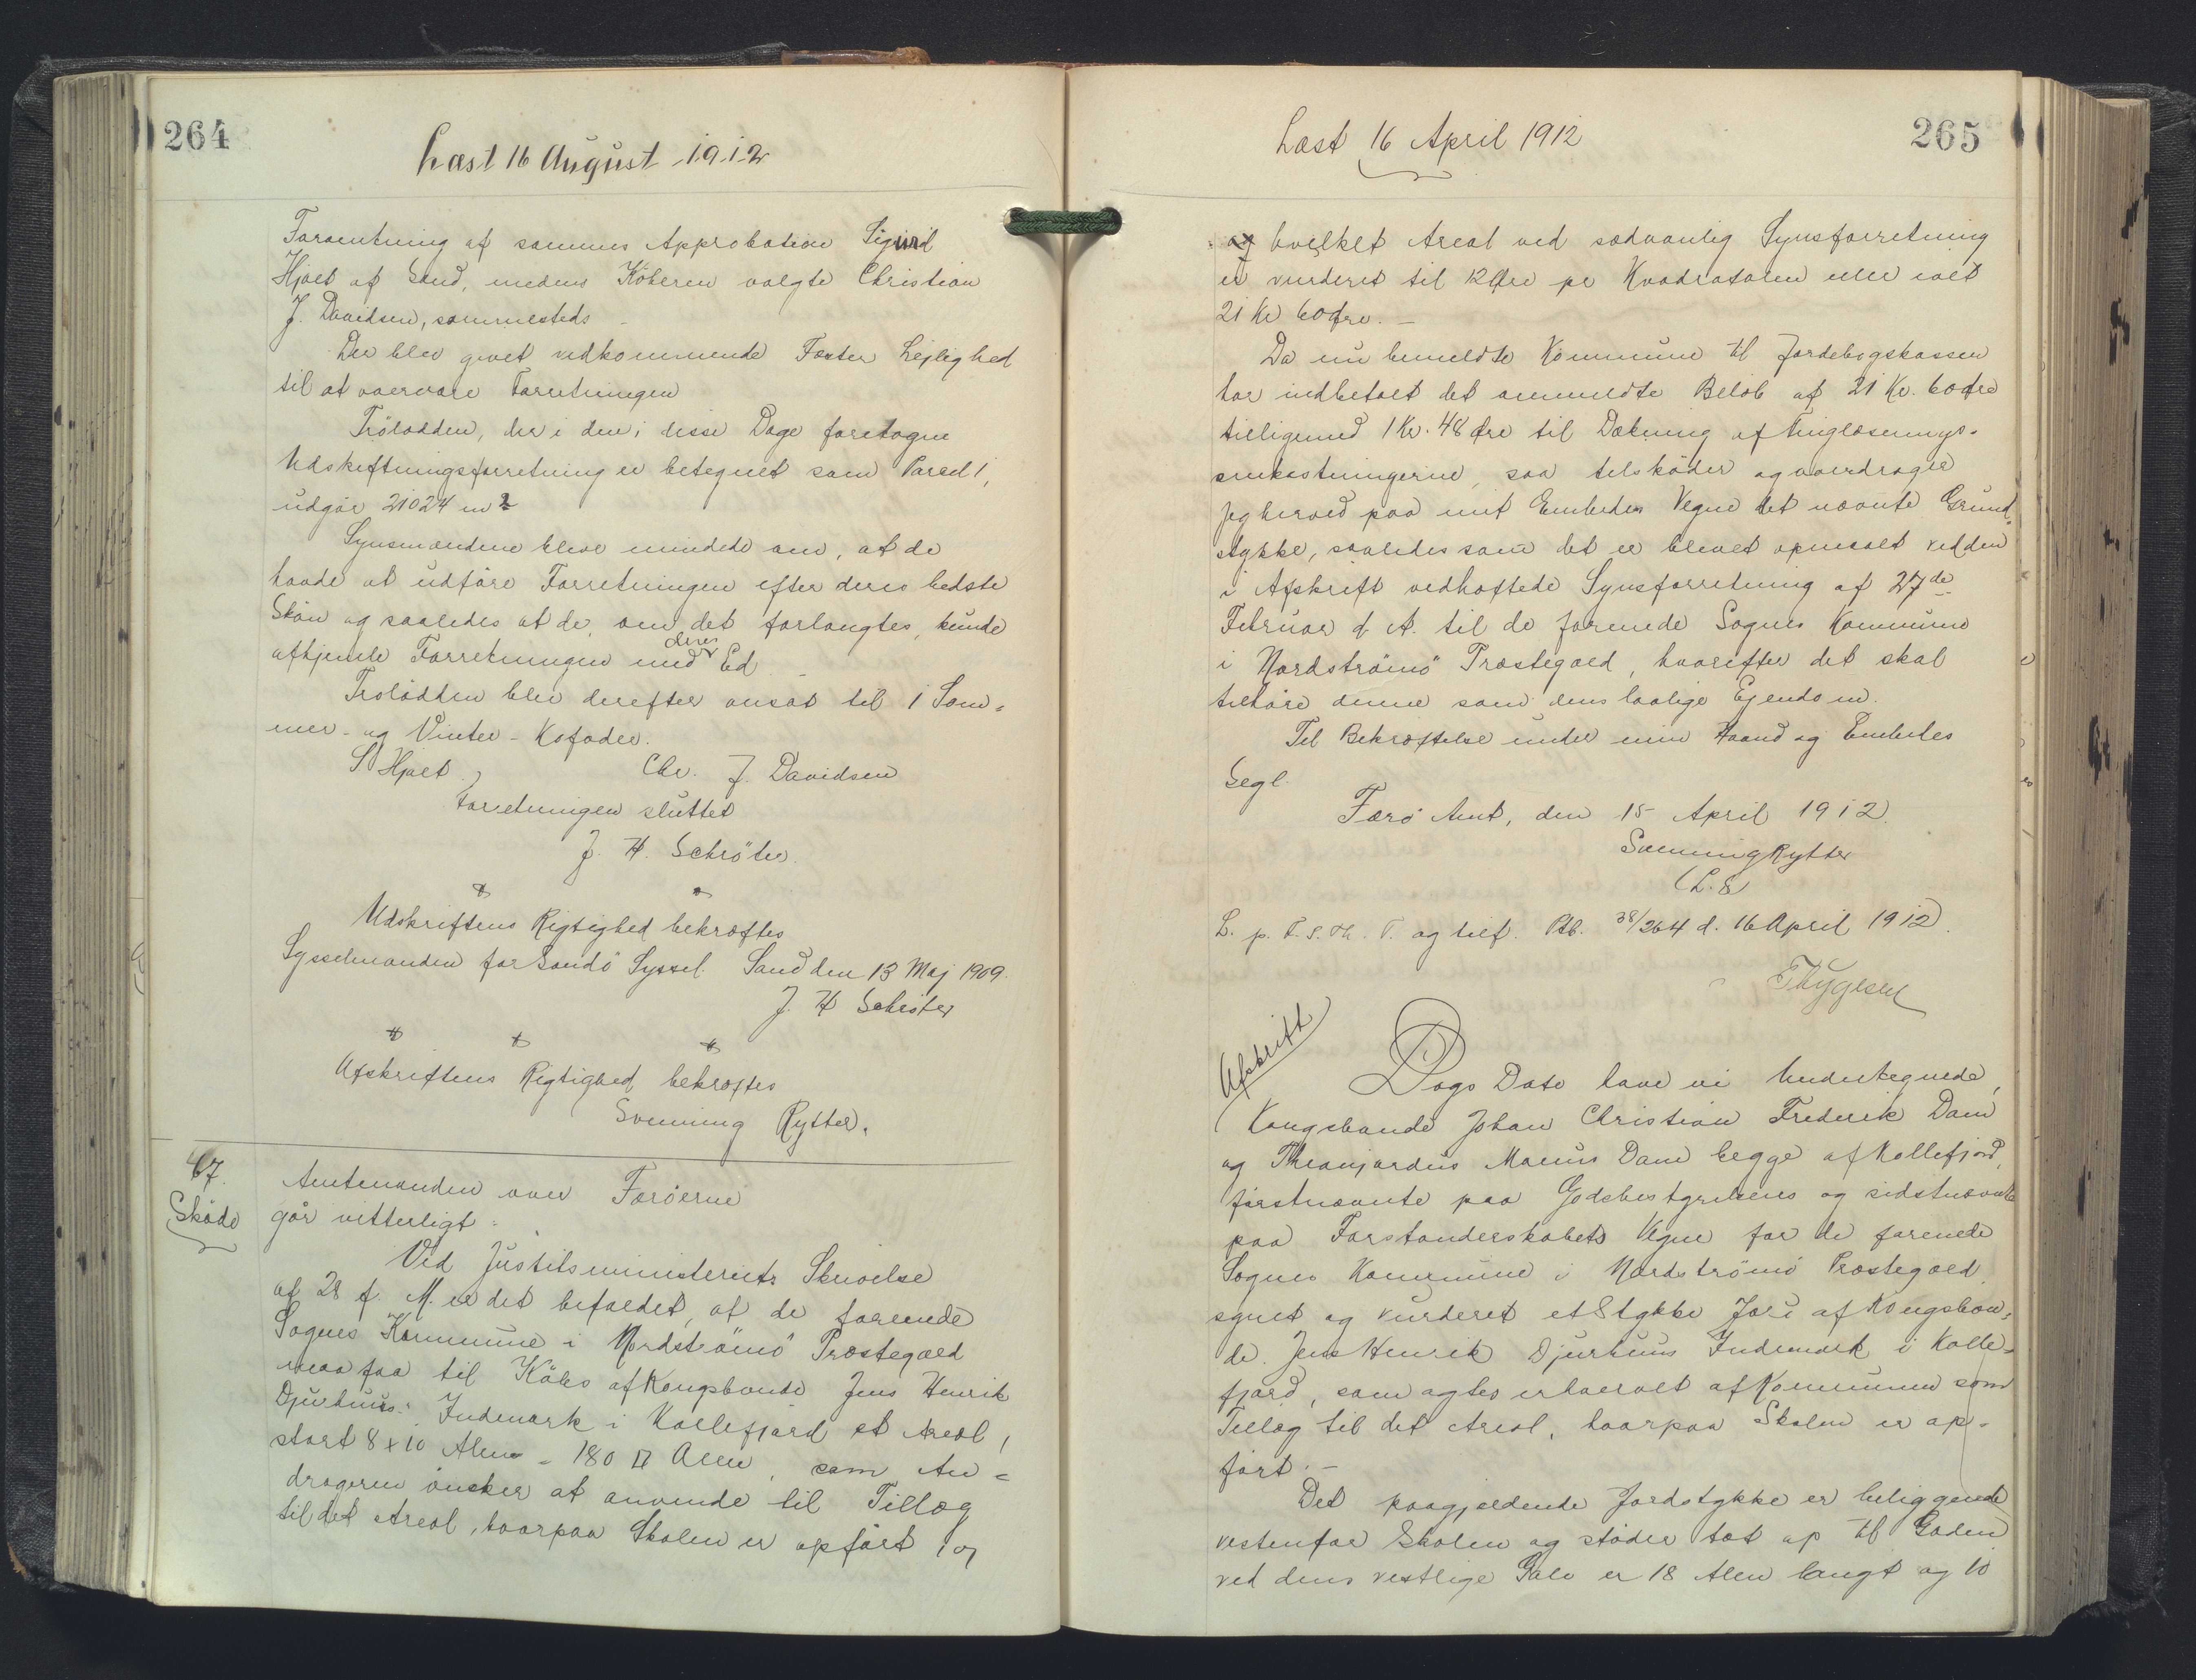 264
Læst 16 August 1912
Forventning af sammes Approbation Sigurd
Hjalt af Sand, medens Köberen valgte Christian
J. Davidsen, sammesteds
Der blev givet vedkommende Fæster Lejlighed
til at overvære Forretningen
Trölodden, der i den i disse Dage foretagne
Udskiftningsforretning er betegnet som Parcel 1,
udgör 21024 m2
Synsmændene bleve mindede om, at de
havde at udföre Forretningen efter deres bedste
Skön og saaledes at de, om det forlangtes, kunde
afhjemle Forretningen med deres Ed
Trölodden blev derefter ansat til 1 Som-
mer- og Vinter-Kofoder.
S Hjalt Chr. J. Davidsen
Forretningen sluttet
J. H. Schröter.
Udskriftens Rigtighed bekræftes
Sysselmanden for Sandö Syssel. Sand den 13 Maj 1909.
J. H Schröter
Afskriftens Rigtighed bekræftes
Svenning Rytter.
67.
Sköde
Amtmanden over Færöerne
gör vitterligt:
Ved Justitsministeriets Skrivelse
af 28 f. M. er det befalet, at de forenede
Sognes Kommune i Nordströmö Præstegæld
maa faa til Köbs af Kongsbonde Jens Henrik
Djurhuus: Indmark i Kollefjord et Areal,
stort 8 x 10 Alen = 180 □ Alen, som An-
drageren önsker at anvende til Tillæg
til det Areal, hvorpaa Skolen er opfört, og
265
Læst 16 April 1912
og hvilket Areal ved sædvanlig Synsforretning
er vurderet til 12 Öre pr Kvadratalen eller ialt
21 Kr 60 Öre.
Da nu bemeldte Kommune til Jordebogskassen
har indbetalt det ommeldte Belöb af 21 Kr. 60 Öre
tilligemed 1 Kr. 48 Öre til Dækning af Tinglæsnings-
omkostningerne, saa tilsköder og overdrager
jeg herved paa mit Embedes Vegne det nævnte Grund-
stykke, saaledes som det er blevet opmaalt ved den
i Afskrift vedhæftede Synsforretning af 27de
Februar d. A. til de forenede Sognes Kommune
i Nordströmö Præstegæld, hvorefter det skal
tilhöre denne som dens lovlige Ejendom.
Til Bekræftelse under min Haand og Embedes
Segl.
Færö Amt, den 15 April 1912.
Svenning Rytter
(L. S)
L. p. F. S. Th. T. og tilf. Ptb. 38/264 d. 16 April 1912.
Thygesen
Afskrift
Dags Dato have vi Undertegnede,
Kongsbonde Johan Christian Frederik Dam
og Marius Dam begge af Kollefjord,
förstnævnte paa Godsbestyrelsens og sidstnævnte
paa Forstanderskabets Vegne for de forenede
Sognes Kommune i Nordströmö Præstegæld
synet og vurderet et Stykke Jord af Kongsbon-
de Jens Henrik Djurhuus Indmark i Kolle-
fjord, som agtes erhvervet af Kommunen som
Tillæg til det Areal, hvorpaa Skolen er op-
fört.
Det paagjældende Jordstykke er beliggende
vestenfor Skolen og stöder tæt op til Gaden
ved dens vestlige Gavl er 18 Alen langt og 10